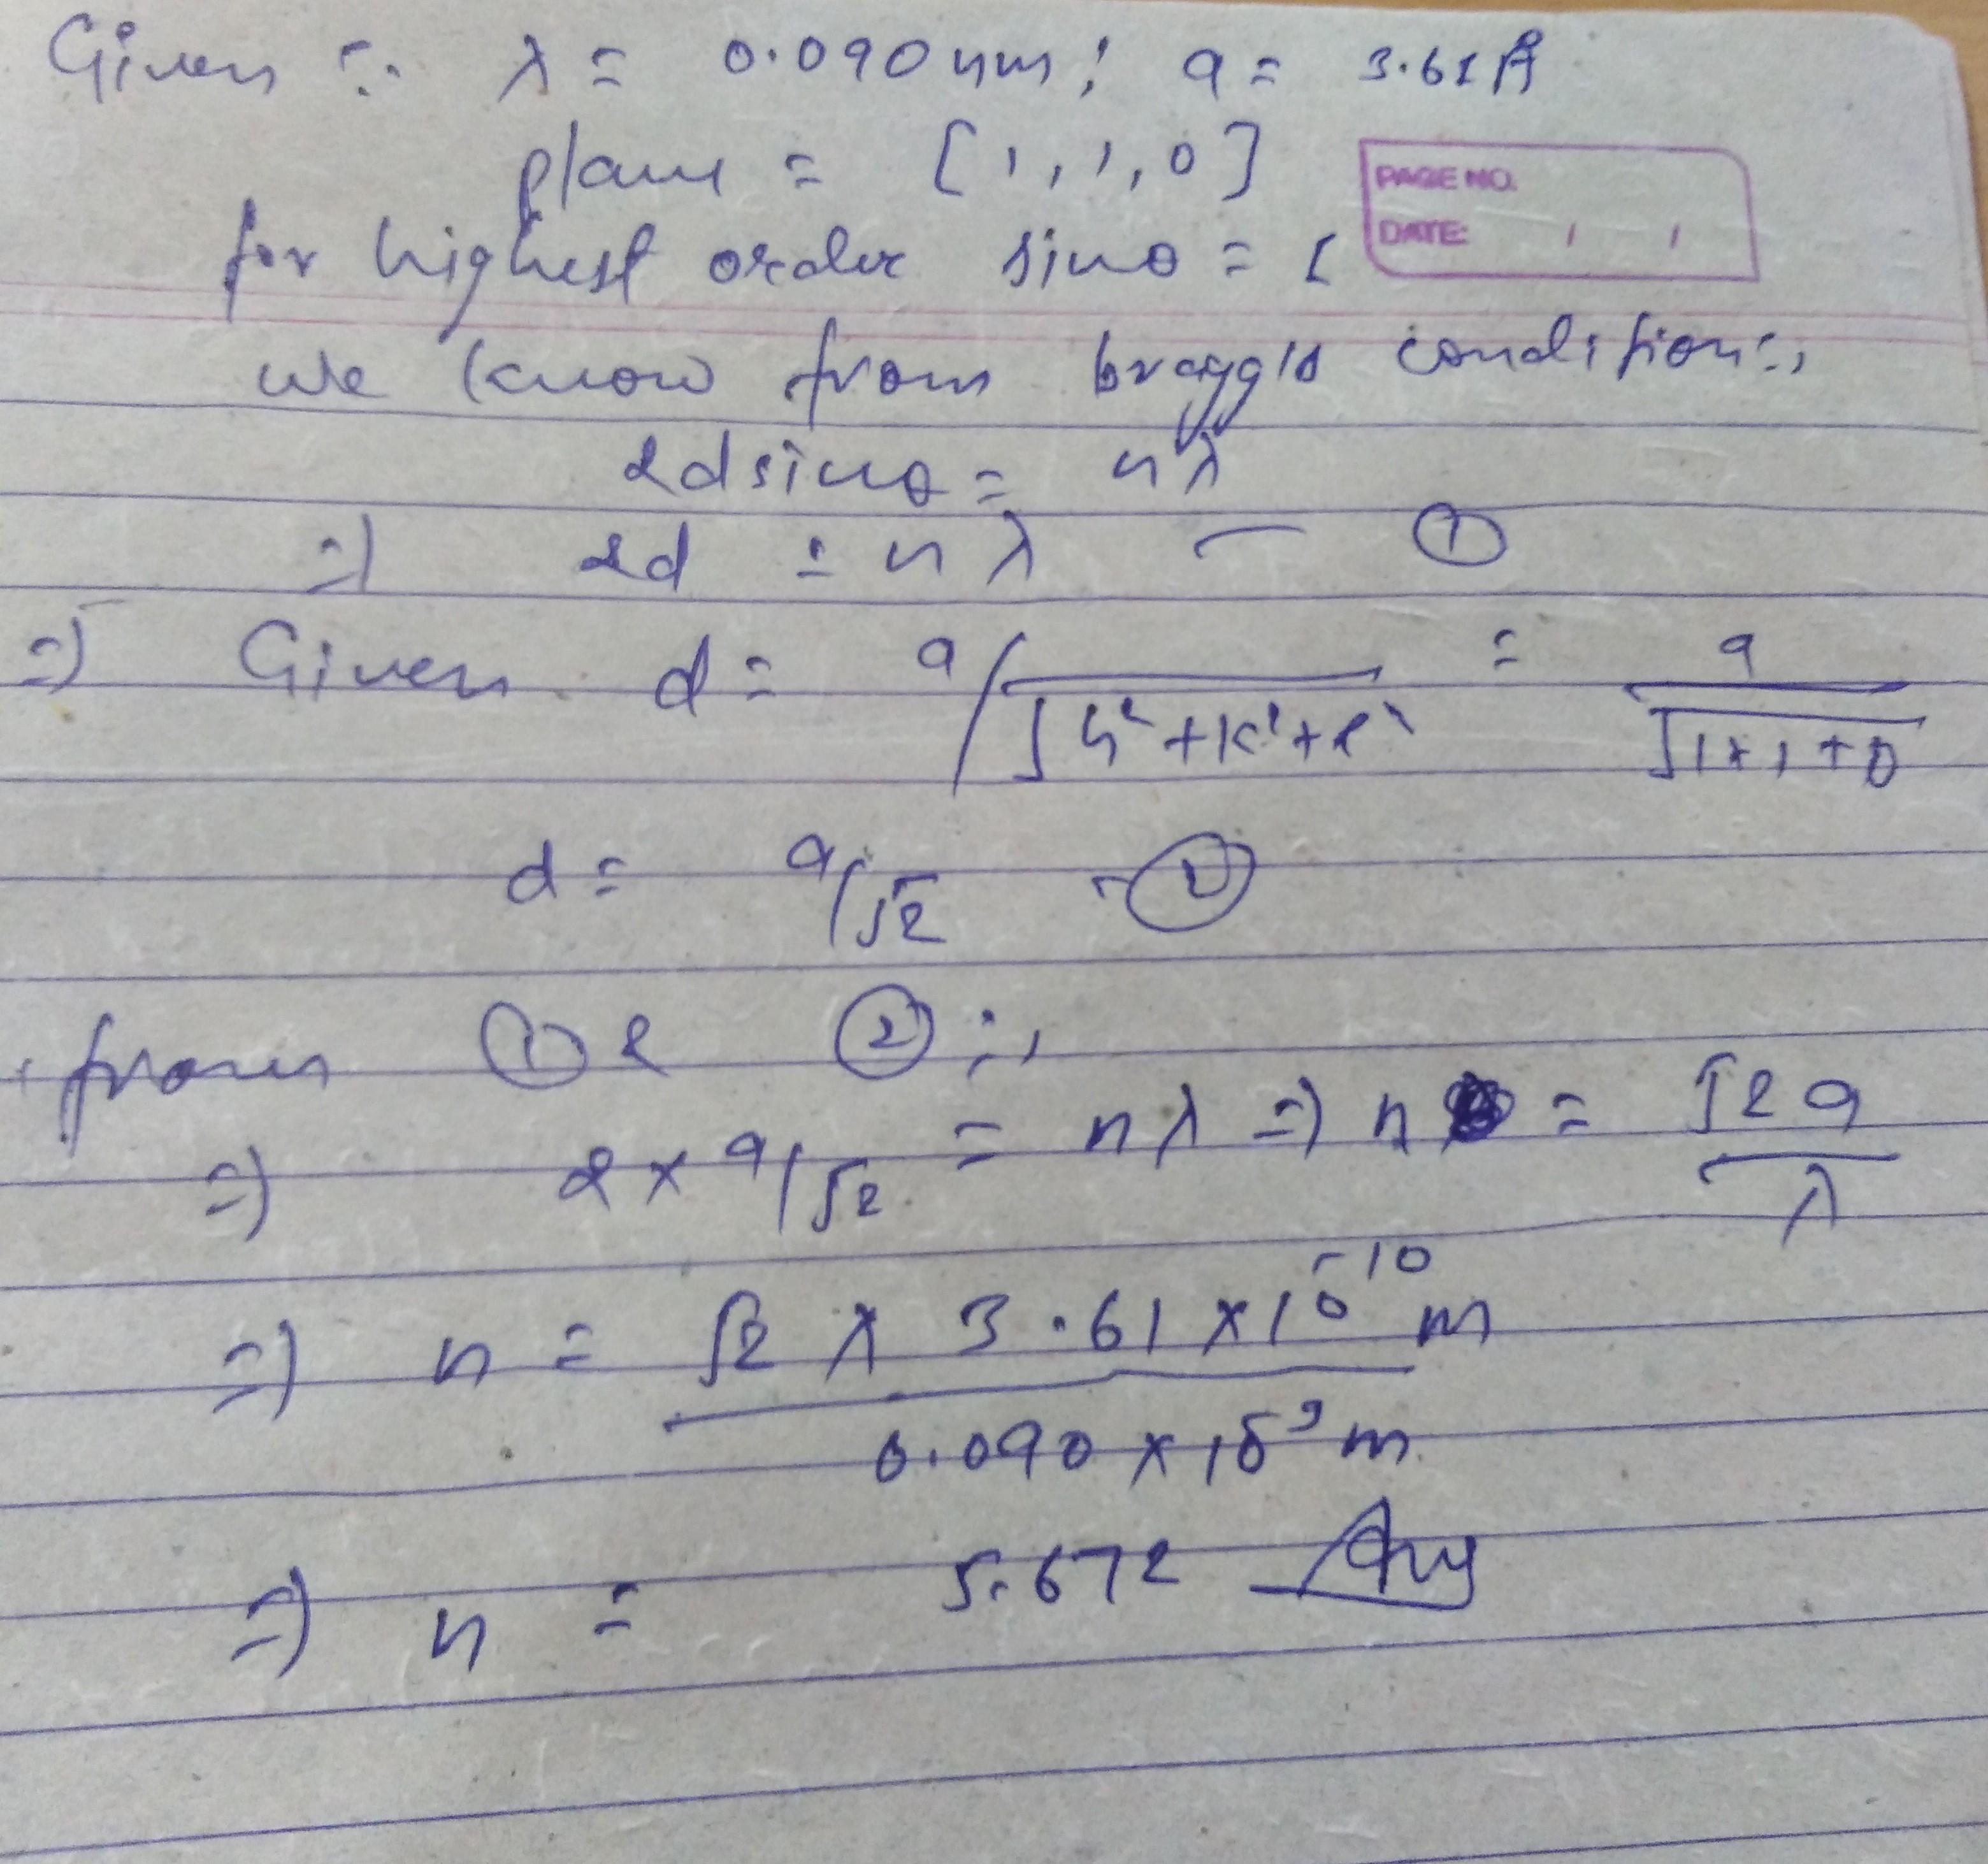 Given :- λ = 0.090 nm; a = 3.61 Å
plane = [1,1,0]
PAGE NO.
DATE: / /
for highest order sinθ = 1
we know from bragg's condition:,
2dsinθ = nλ
⇒) 2d = nλ — ①
⇒) Given d = a/√h²+k²+l² = a/√1+1+0
d = a/√2 -②
from ① & ② :,
⇒) 2 × a/√2 = nλ ⇒) n = √2 a/λ
⇒) n = √2 × 3.61 × 10⁻¹⁰ m
0.090 × 10⁻⁹ m
⇒) n = 5.672 Ans